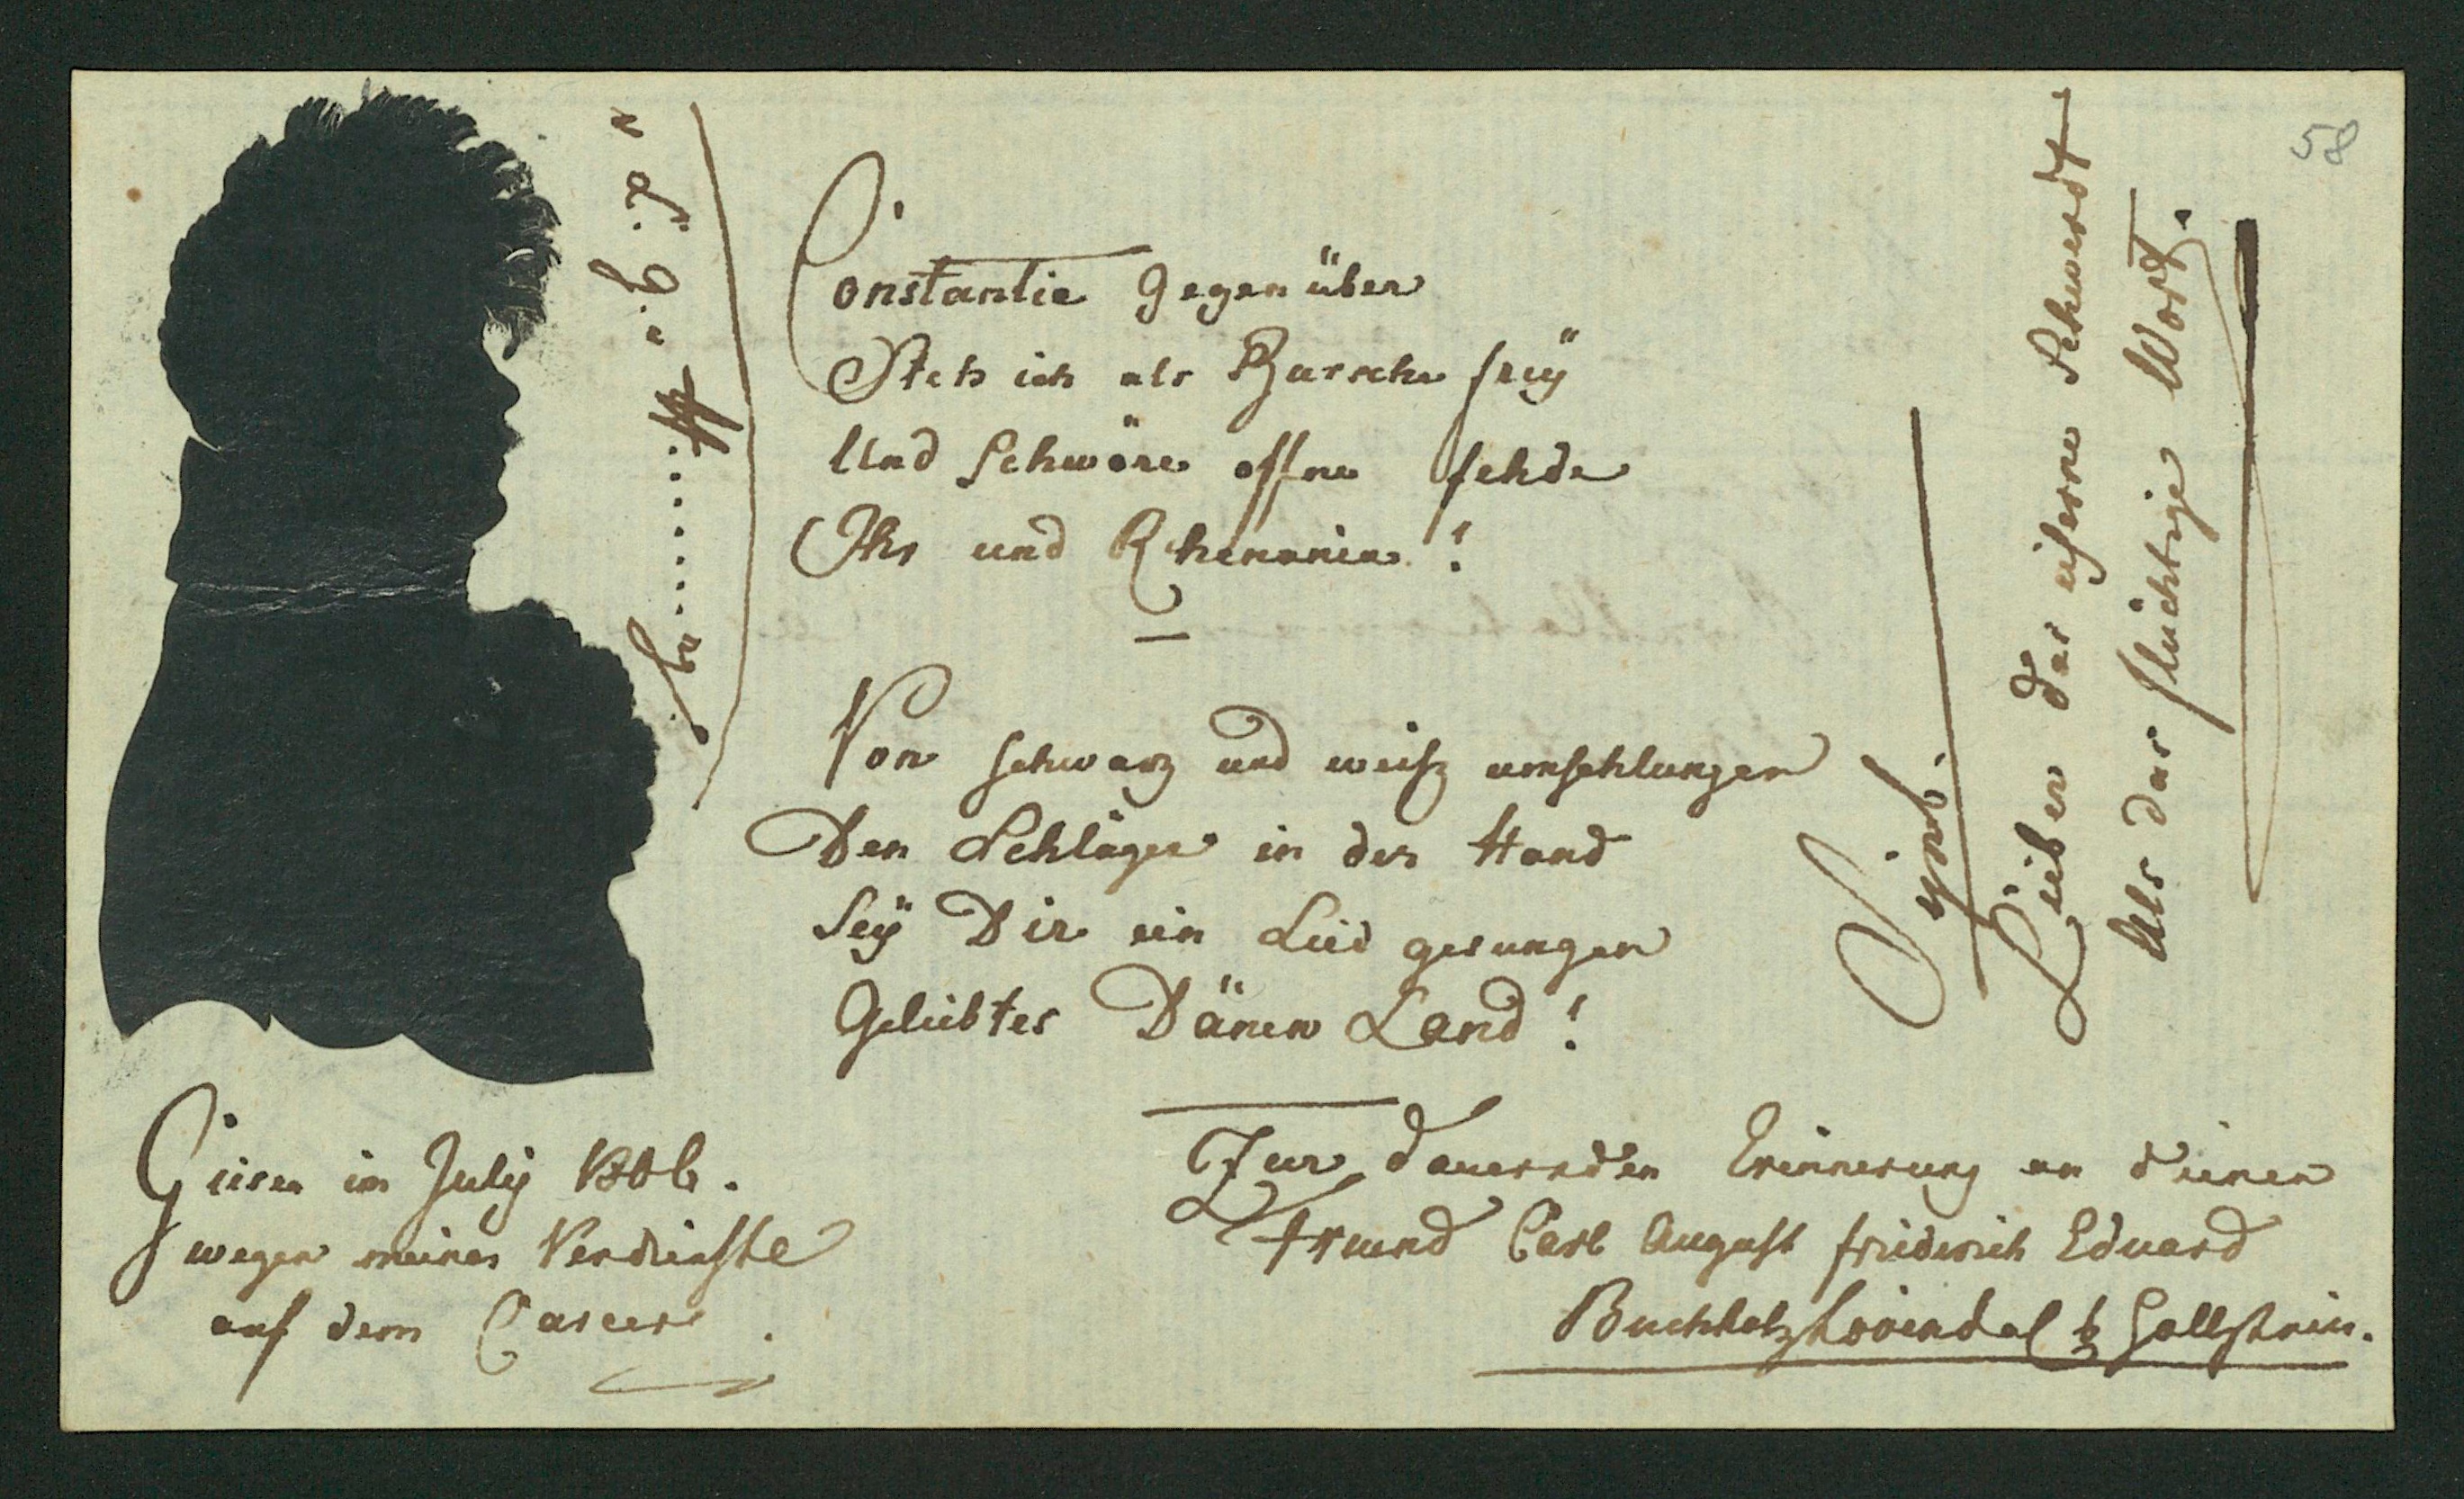 58
Constantia gegenüber
Steh ich als Bursche freÿ
Und Schwöre offne fehde
Ihr und Rhenania!
Von schwarz und weiß umschlungen
Den Schläger in der Hand
Seÿ Dir ein Lied gesungen
Geliebtes Dänen Land!
Symb.
Lieber das eiserne Schwerdt
Als das flüchtige Wort.
Giesen im July
wegen meiner Verdienste
auf dem Carcer.
Zur dauernden Erinnerung an deinen
Freund Carl August friederich Eduard
Buchholz